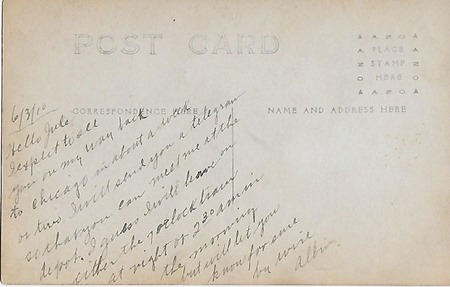 POST CARD
AZO
PLACE
STAMP
HERE
AZO
CORRESPONDENCE HERE
NAME AND ADDRESS HERE
6/3/10
Hello Jule
I expect to see
you on my way back
to Chicago in about a week
or two. I will send you a telegram
so that you can meet me at the
depot. I guess I will leave on
either the 7 oclock train
at night or 2 30 am in
the morning
but will let you
know for sure
by wire